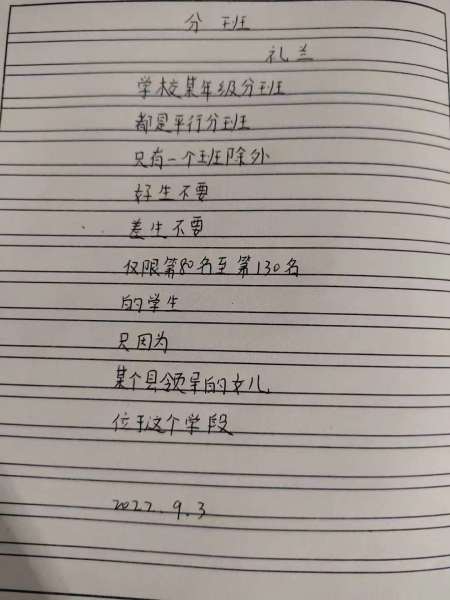 分班
礼兰
学校某年级分班
都是平行分班
只有一个班除外
好生不要
差生不要
仅限第80名至第130名
的学生
只因为
某个县领导的女儿
位于这个学段
2022.9.3